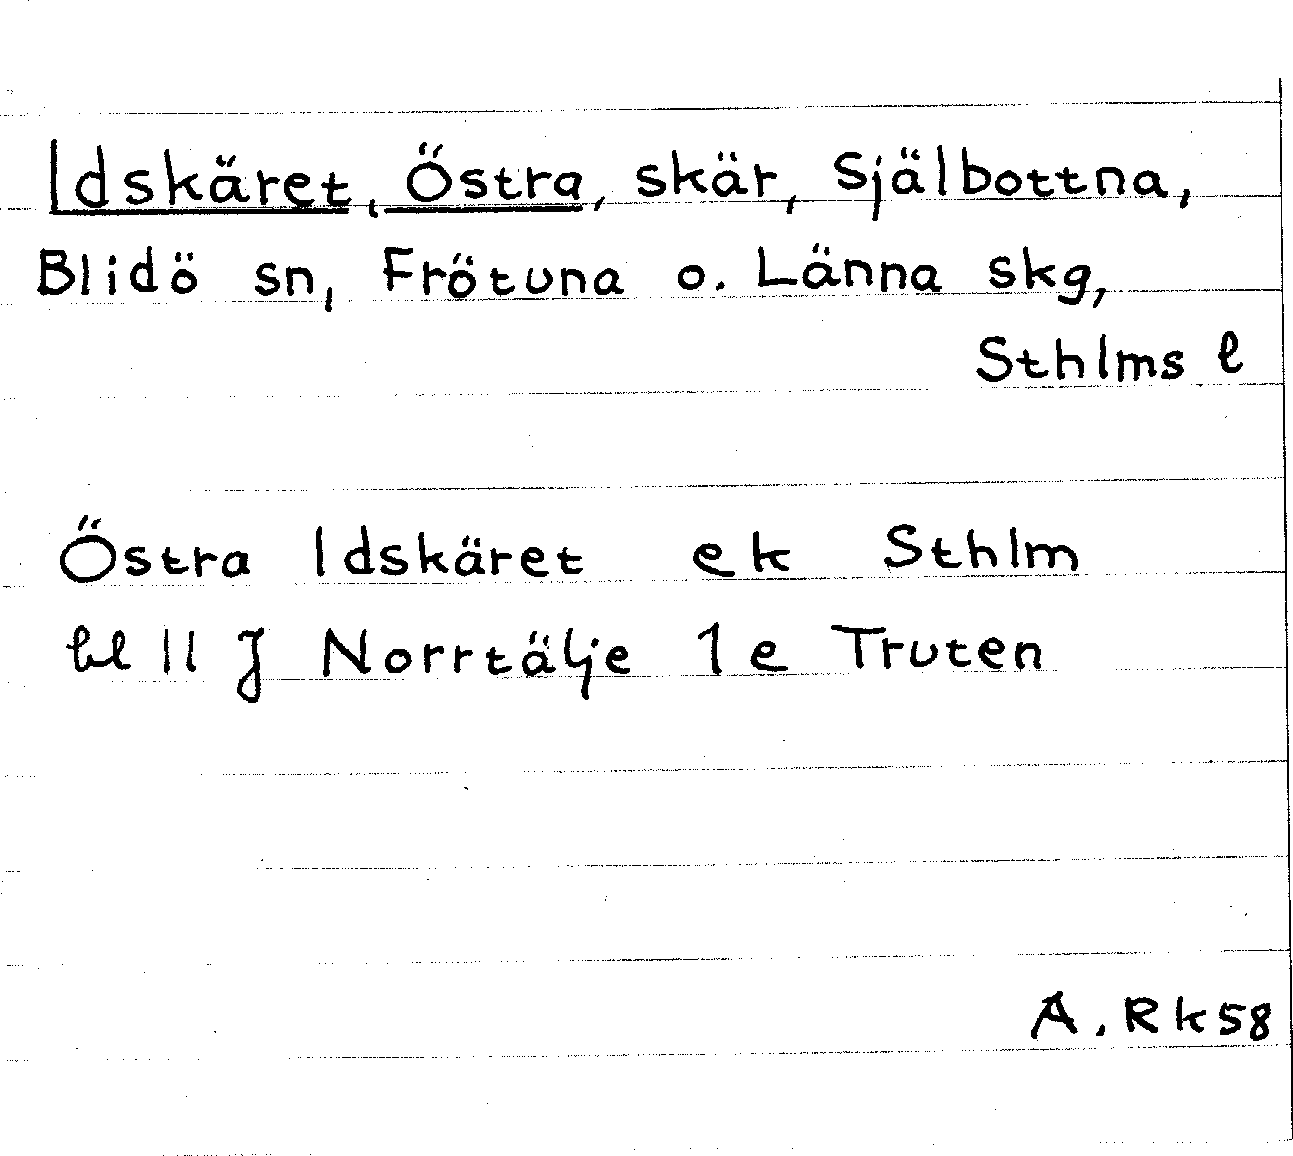 Idskäret, Östra, skär, Själbottna,
Blidö sn, Frötuna o. Länna skg,
Sthlms l
Östra Idskäret ek Sthlm
bl 11 J Norrtälje 1e Truten
A. Rk58